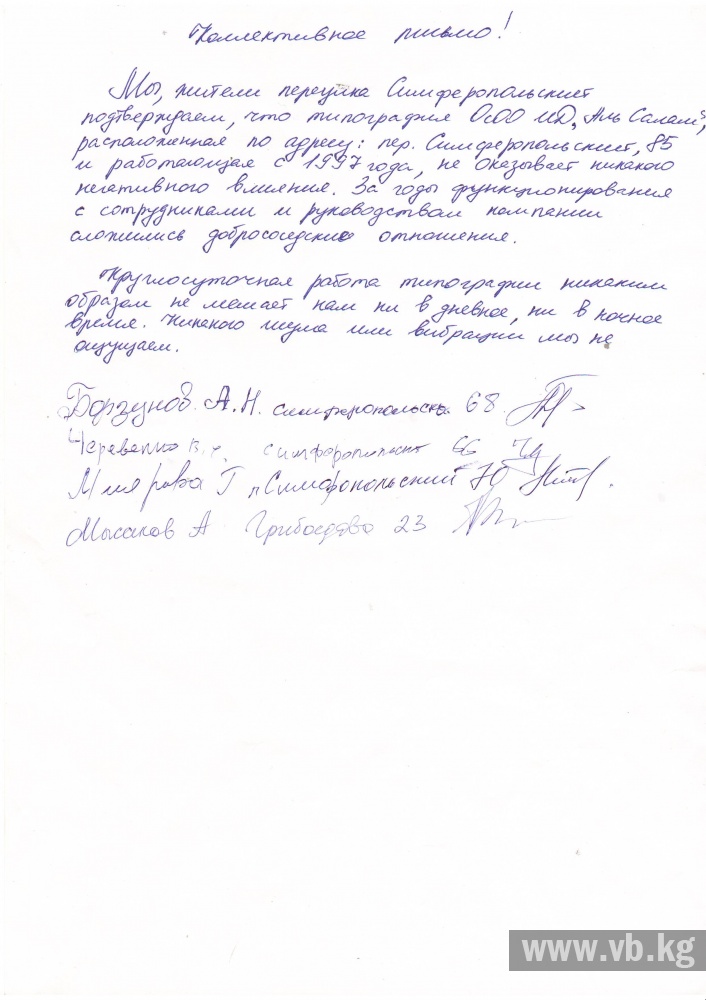 Коллективное письмо!
Мы, жители переулка Симферопольский
подтверждаем, что типография ОсОО ИД „Аль Салам",
расположенная по адресу: пер. Симферопольский, 85
и работающая с 1997 года, не оказывает никакого
негативного влияния. За годы функционирования
с сотрудниками и руководством компании
сложились добрососедские отношения.
Круглосуточная работа типографии никаким
образом не мешает нам ни в дневное, ни в ночное
время. Никакого шума или вибрации мы не
ощущаем.
Борзунов А.Н. Симферопольск. 68
66
Г п Симфропольский 70
Мысаков А Грибоедова 23
www.vb.kg